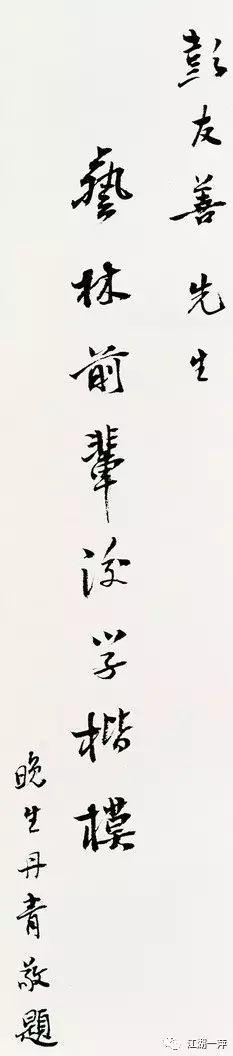 彭友善先生
藝林前輩後学楷模
晚生丹青敬題
江湖一萍